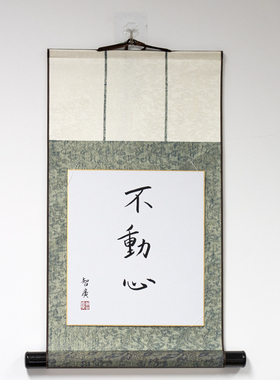 不動心
智廣